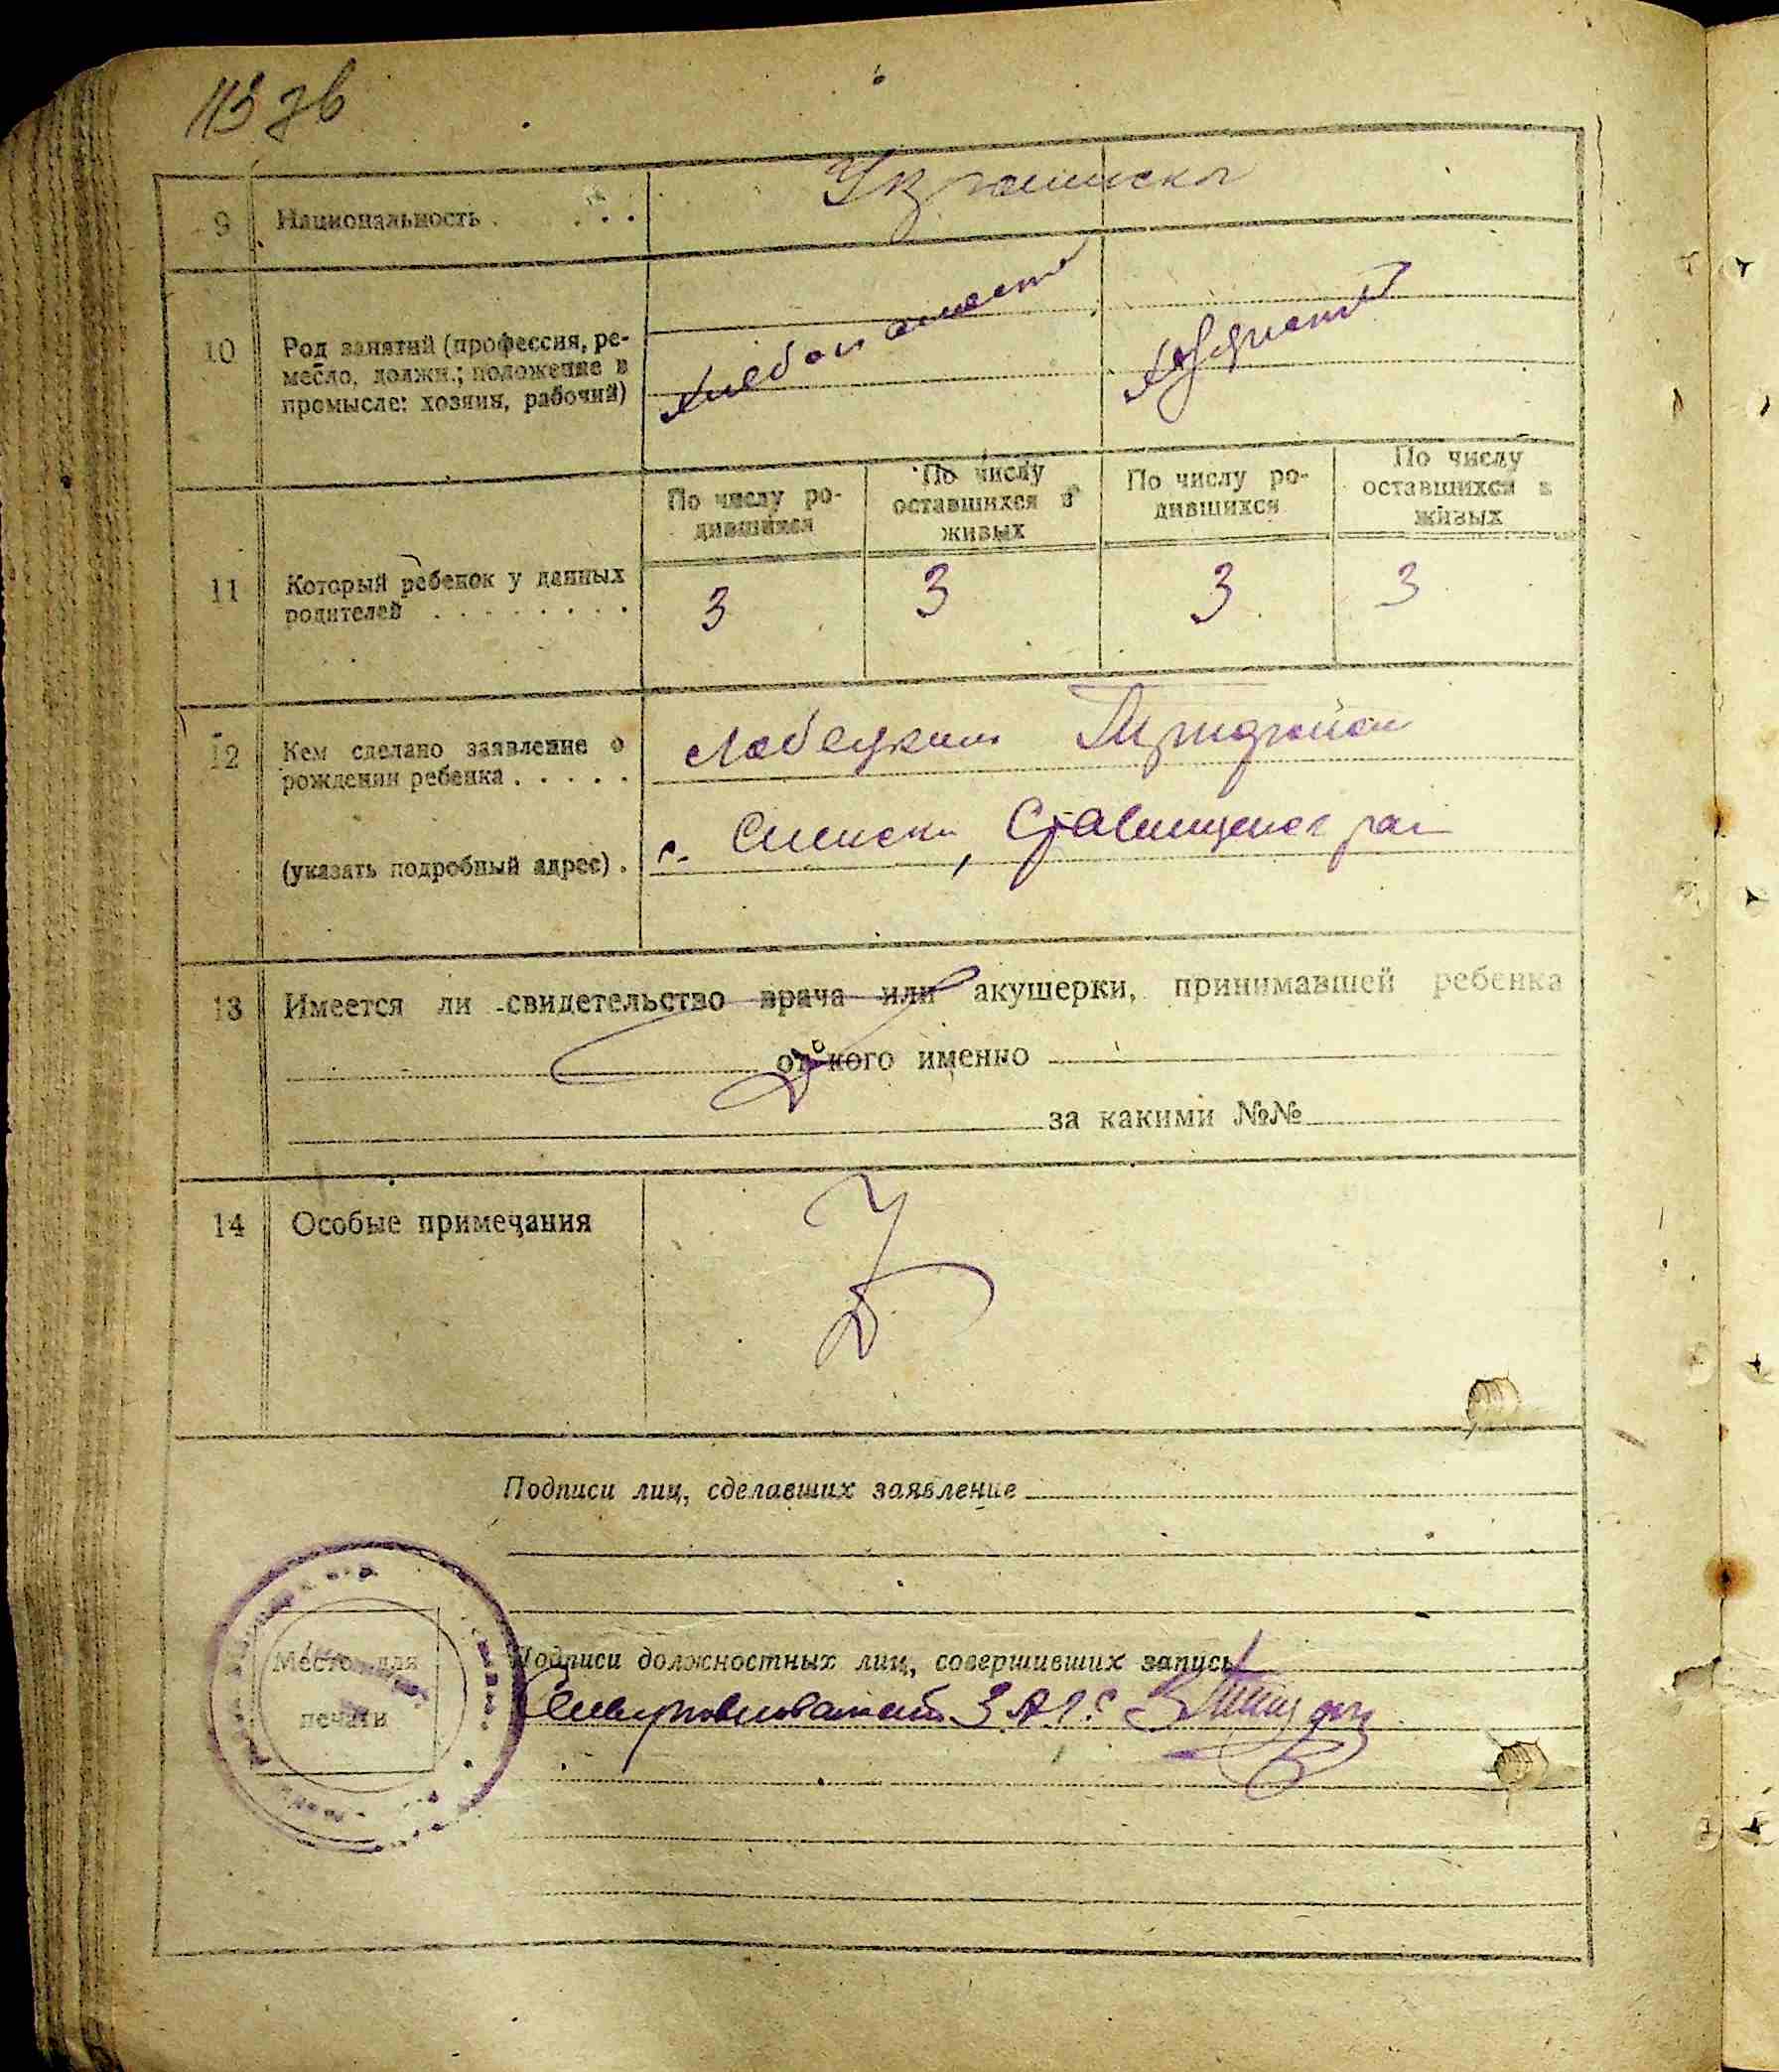 113 зв
Украински
9 Национальность . . . .
10 Род занятий (профессия, ре-
месло, должн.; положение в
промысле: хозяин, рабочий)
Хлебопашест
По числу ро-
дившихся
По числу
оставшихся в
живых
По числу ро-
дившихся
По числу
оставшихся в
живых
11 Который ребенок у данных
родителей . . . . . . . .
3 3 3 3
12 Кем сделано заявление о
рождении ребенка . . . . .
Лобецким
(указать подробный адрес) .
с. Ставищенск рай
13 Имеется ли свидетельство врача или акушерки, принимавшей ребенка
от кого именно
за какими №№
14 Особые примечания
Подписи лиц, сделавших заявление
Место для
печати
Подписи должностных лиц, совершивших запись